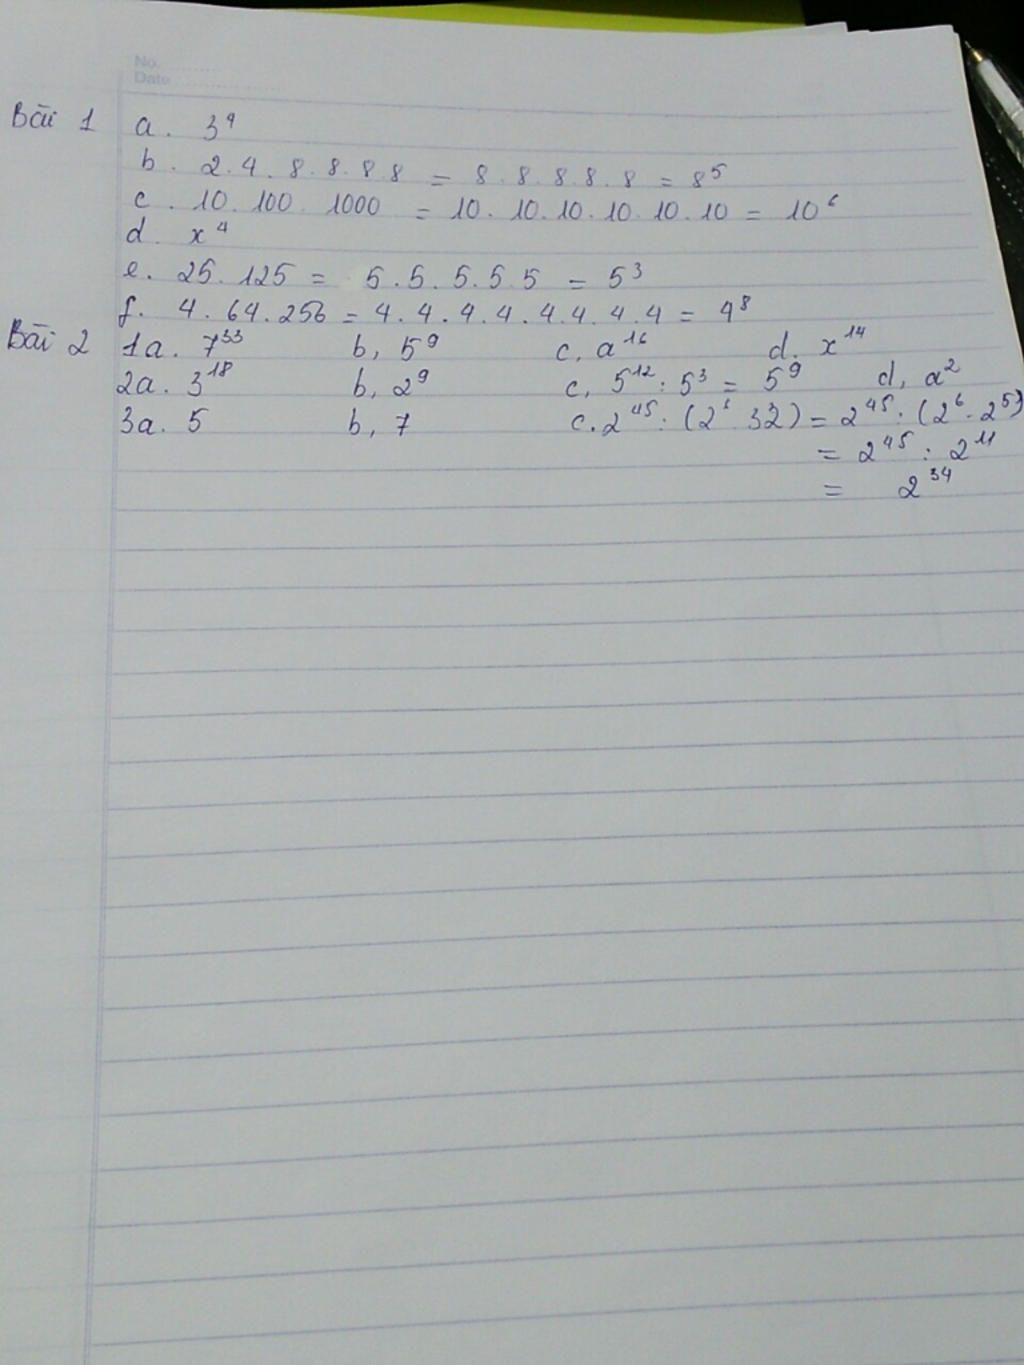 No.
Date
Bài 1 a. 3⁴
b. 2.4.8.8.8.8 = 8.8.8.8.8 = 8⁵
c. 10.100.1000 = 10.10.10.10.10.10 = 10⁶
d. x⁴
e. 25.125 = 5.5.5.5.5 = 5³
f. 4.64.256 = 4.4.4.4.4.4.4.4 = 4⁸
Bài 2 1a. 7³³ b, 5⁹ c, a¹⁶ d. x¹⁴
2a. 3¹⁸ b, 2⁹ c, 5¹² : 5³ = 5⁹ d, a²
3a. 5 b, 7 c. 2⁴⁵ : (2⁶.32) = 2⁴⁵ : (2⁶.2⁵)
= 2⁴⁵ : 2¹¹
= 2³⁴